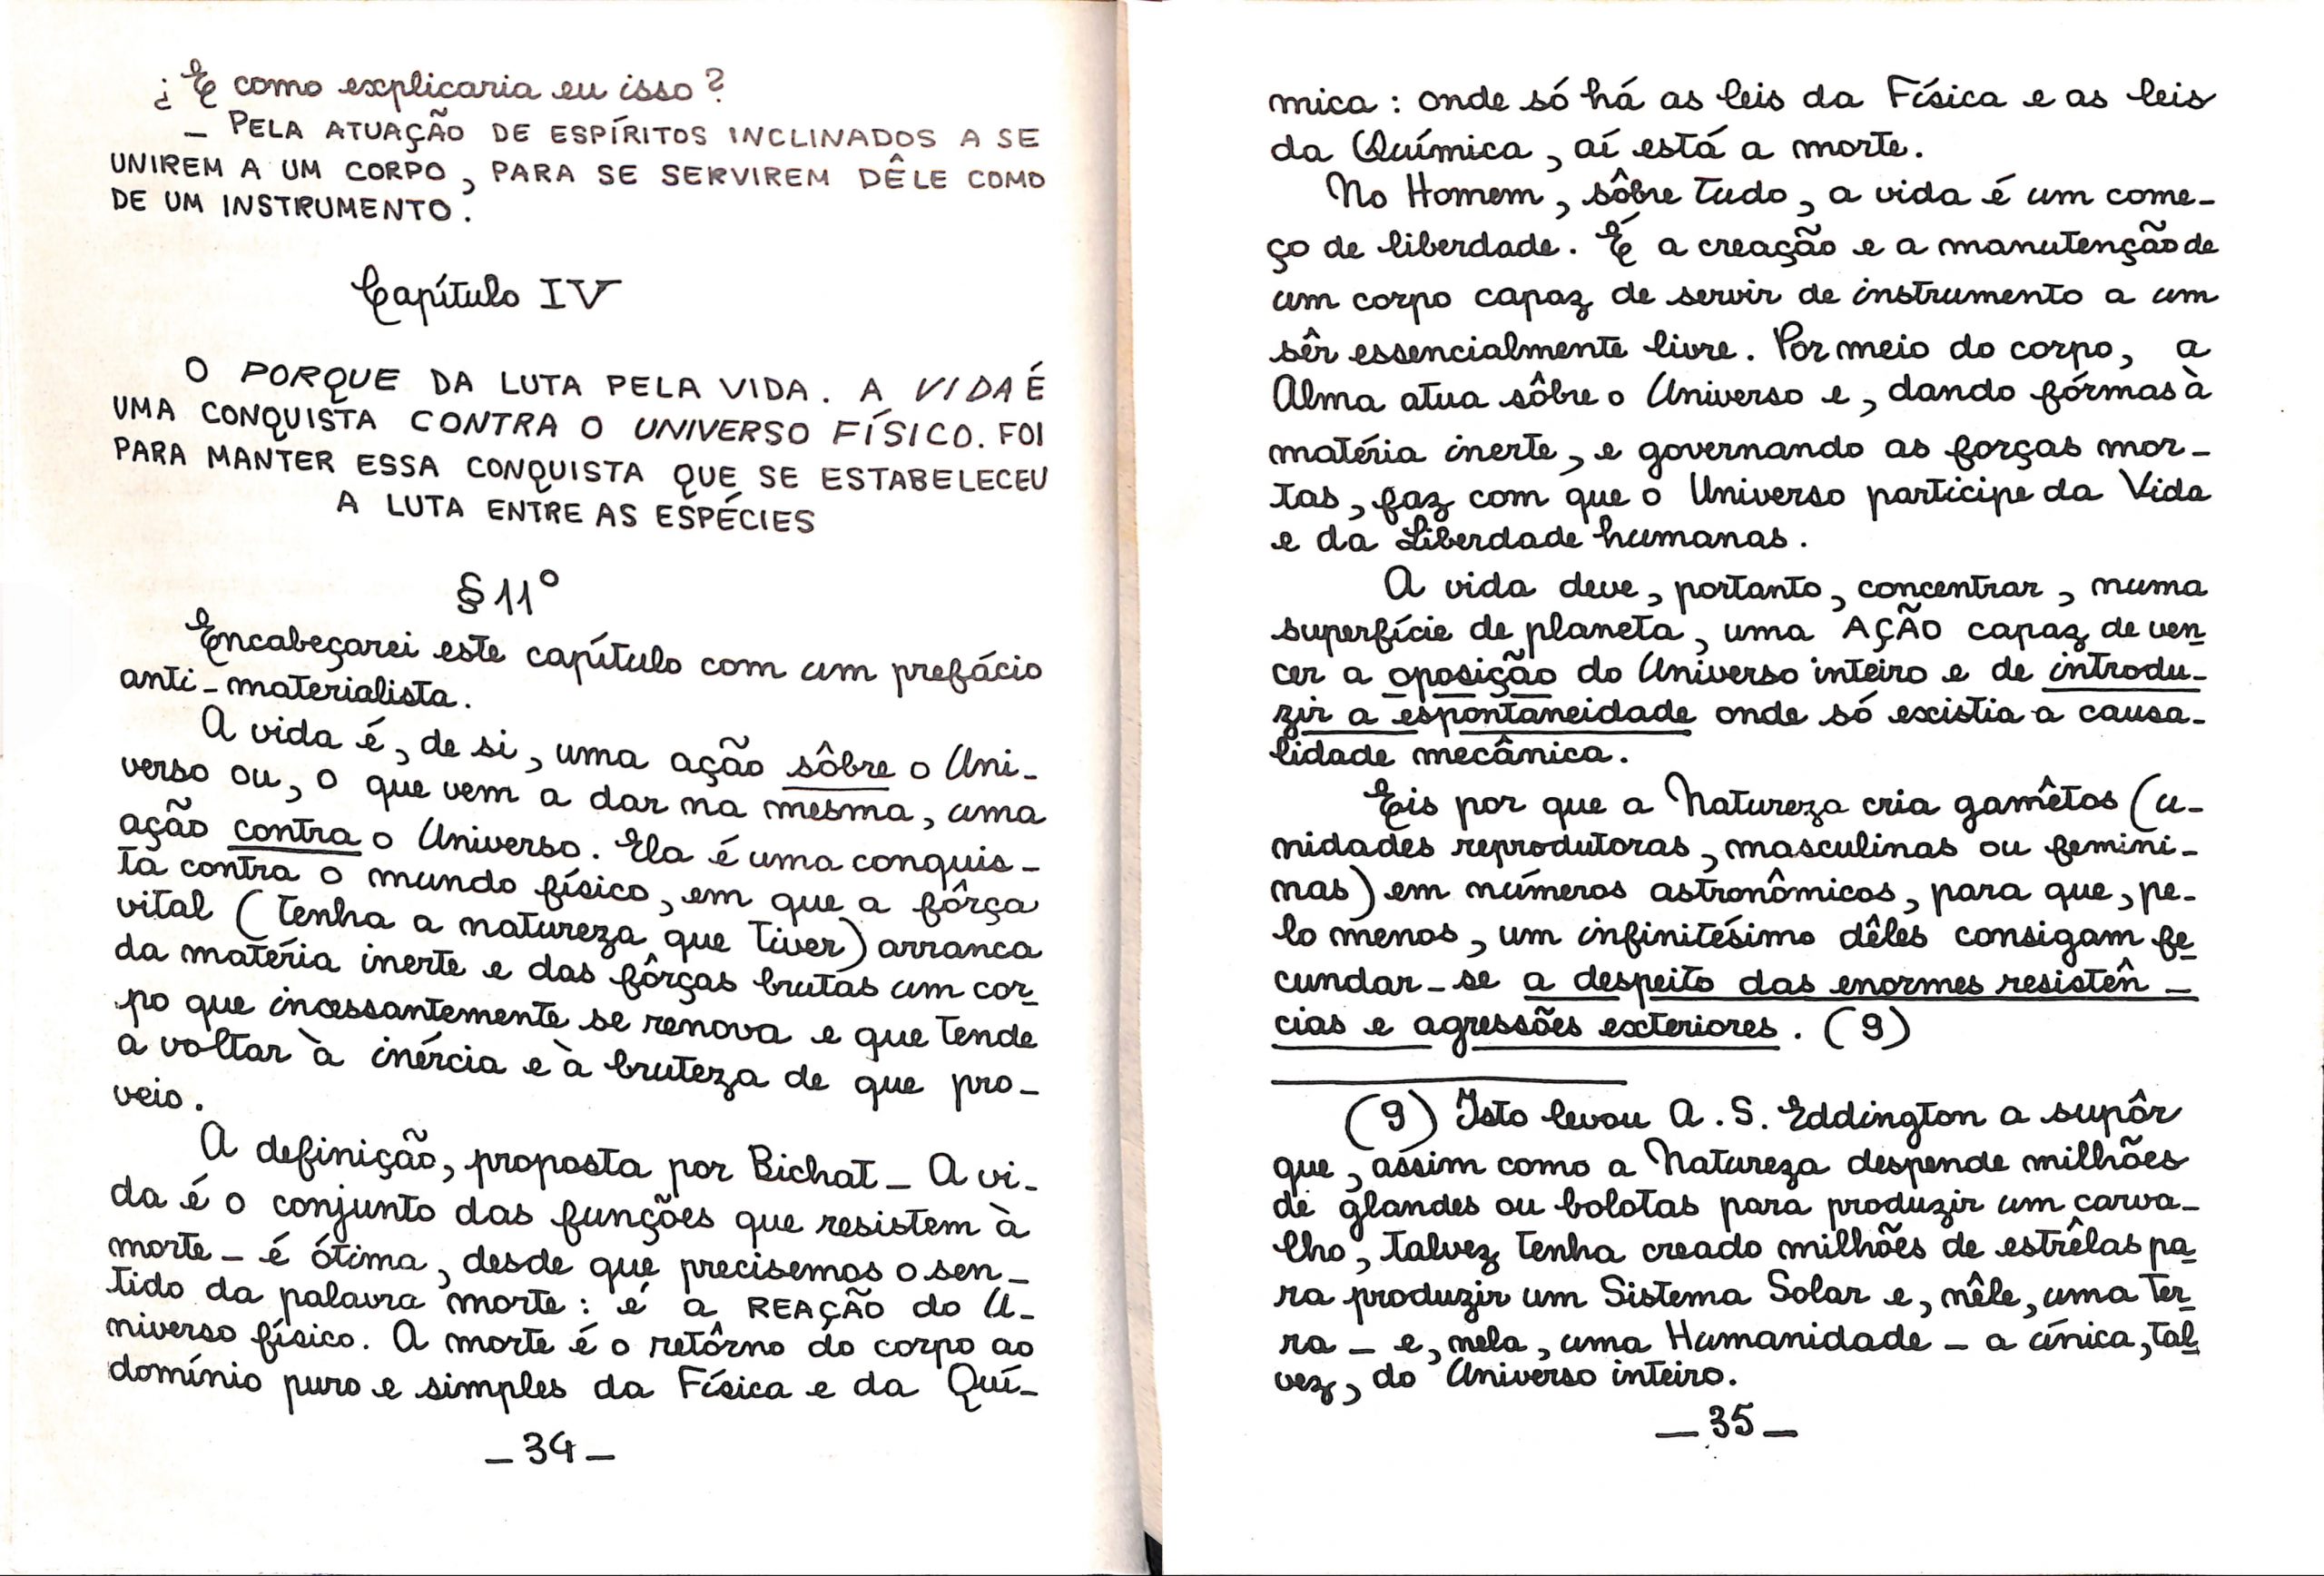 ¿E como explicaria eu isso?
– PELA ATUAÇÃO DE ESPÍRITOS INCLINADOS A SE
UNIREM A UM CORPO, PARA SE SERVIREM DÊLE COMO
DE UM INSTRUMENTO.
Capítulo IV
O PORQUE DA LUTA PELA VIDA. A VIDA É
UMA CONQUISTA CONTRA O UNIVERSO FÍSICO. FOI
PARA MANTER ESSA CONQUISTA QUE SE ESTABELECEU
A LUTA ENTRE AS ESPÉCIES
§ 11º
Encabeçarei este capítulo com um prefácio
anti-materialista.
A vida é, de si, uma ação sôbre o Uni-
verso ou, o que vem a dar na mesma, uma
ação contra o Universo. Ela é uma conquis-
ta contra o mundo físico, em que a fôrça
vital (tenha a natureza que tiver) arranca
da matéria inerte e das fôrças brutas um cor-
po que incessantemente se renova e que tende
a voltar à inércia e à bruteza de que pro-
veio.
A definição, proposta por Bichat – A vi-
da é o conjunto das funções que resistem à
morte – é ótima, desde que precisemos o sen-
tido da palavra morte: é a REAÇÃO do U-
niverso físico. A morte é o retôrno do corpo ao
domínio puro e simples da Física e da Quí-
– 34 –
mica: onde só há as leis da Física e as leis
da Química, aí está a morte.
No Homem, sôbre tudo, a vida é um come-
ço de liberdade. É a creação e a manutenção de
um corpo capaz de servir de instrumento a um
sêr essencialmente livre. Por meio do corpo, a
Alma atua sôbre o Universo e, dando fórmas à
matéria inerte, e governando as forças mor-
tas, faz com que o Universo participe da Vida
e da Liberdade humanas.
A vida deve, portanto, concentrar, numa
superfície de planeta, uma AÇÃO capaz de ven-
cer a oposição do Universo inteiro e de introdu-
zir a espontaneidade onde só existia a causa-
lidade mecânica.
Eis por que a Natureza cria gamêtos (u-
nidades reprodutoras, masculinas ou femini-
nas) em números astronômicos, para que, pe-
lo menos, um infinitésimo dêles consigam fe-
cundar-se a despeito das enormes resistên-
cias e agressões exteriores. (9)
(9) Isto levou A. S. Eddington a supôr
que, assim como a Natureza despende milhões
de glandes ou bolotas para produzir um carva-
lho, talvez tenha creado milhões de estrêlas pa-
ra produzir um Sistema Solar e, nêle, uma Ter-
ra – e, nela, uma Humanidade – a única, tal-
vez, do Universo inteiro.
– 35 –